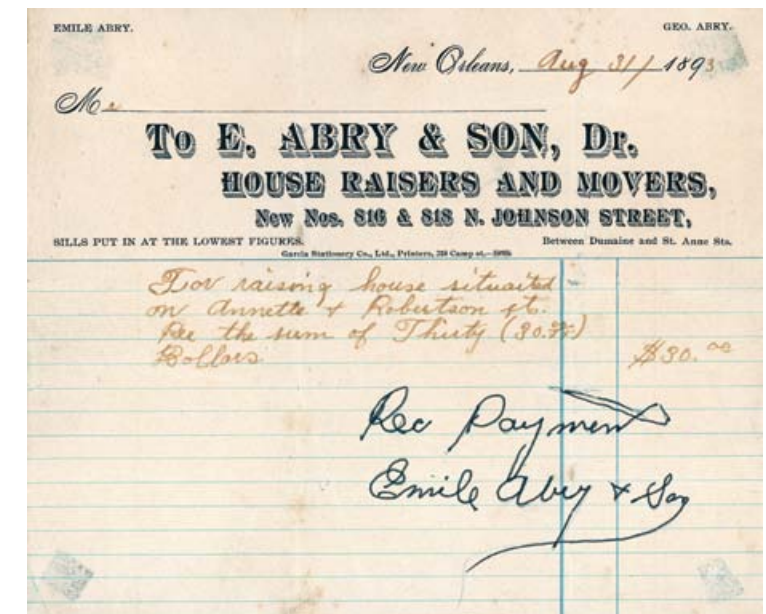 EMILE ABRY.
GEO. ABRY.
New Orleans, Aug 31/ 1893
M
To E. ABRY & SON, Dr.
HOUSE RAISERS AND MOVERS,
New Nos. 816 & 818 N. JOHNSON STREET,
SILLS PUT IN AT THE LOWEST FIGURES.
Between Dumaine and St. Anne Sts.
Garcia Stationery Co., Ltd., Printers, Camp st.
For raising house situaited
on Annette & Robertson st.
Rec the sum of Thirty (30.00)
Dollars $30.00
Rec Payment
Emile Abry & Son